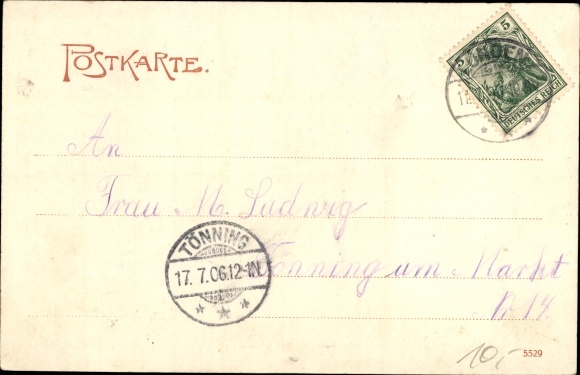 POSTKARTE.
5
5
DEUTSCHES REICH
An
Frau M. Ludwig
TÖNNING
17. 7. 06. 12-1N
Tönning am Markt
No 14.
10,-
5529